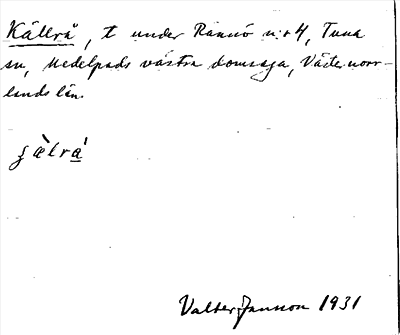 Källrå, t under Rännö nr 4, Tuna
sn, Medelpads västra domsaga, Väster norr-
lands län.
Valter Jansson 1931